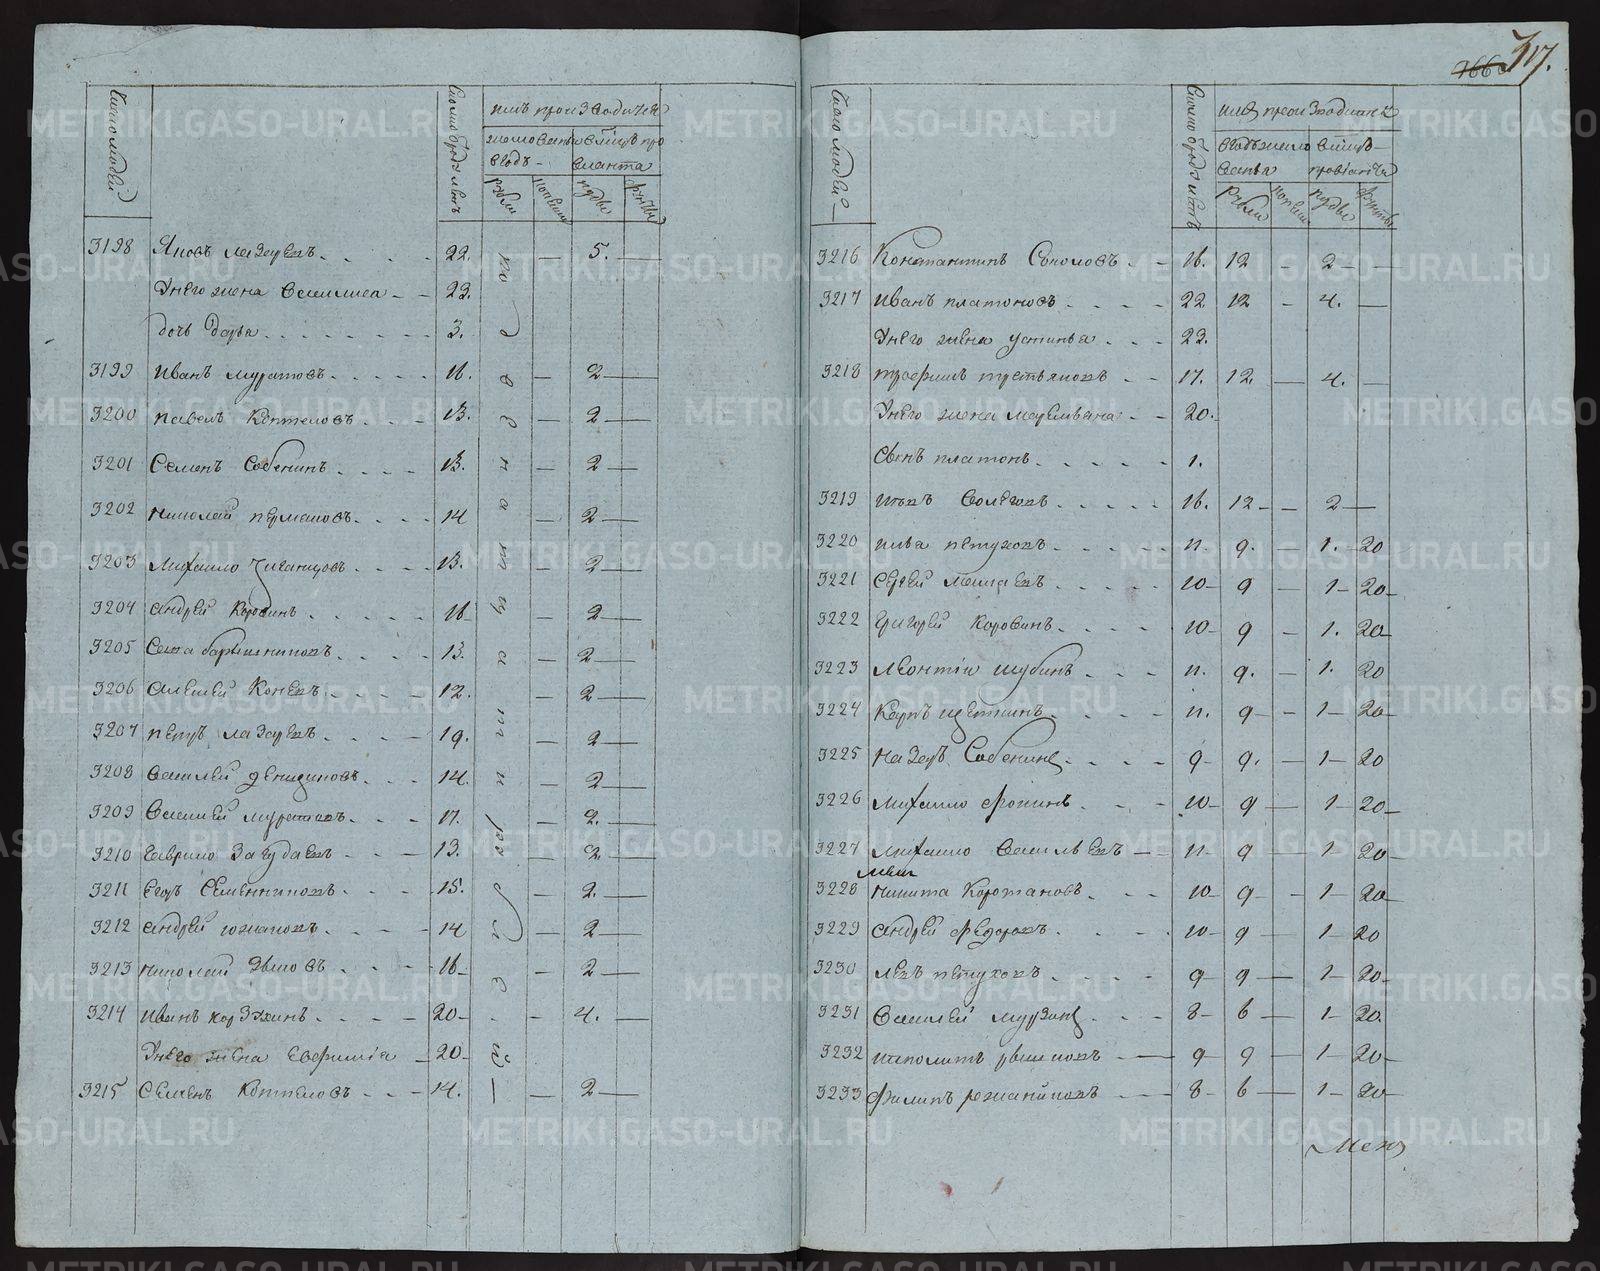 317.
Число людей
Сколко от роду лет
им производится
жалованья в год
в месяц провианта
рубли
копейки
пуды
фунты
3198 Яковъ лазаревъ 22. 5.
У него жена Василиса 23.
дочь дарья 3.
3199 Иванъ муратовъ 16. 2
3200 павелъ Коптеловъ 13. 2
3201 Семенъ Собенинъ 13. 2
3202 Николай пермяковъ 14 2
3203 Михаило 13. 2
3204 андрей Коровинъ 16 2
3205 Савва барышниковъ 13. 2
3206 алексей Коневъ 12. 2
3207 петръ лазаревъ 19. 2
3208 Василей демидовъ 14. 2
3209 Василей муратовъ 17. 2.
3210 Гаврило Загудаевъ 13. 2
3211 Егоръ Семенниковъ 15. 2.
3212 андрей южаковъ 14 2
3213 Николай 16 2
3214 Иванъ корзухинъ 20 4.
У него жена Евфимия 20
3215 Семенъ Коптеловъ 14. 2
по девеноста три рубли
Число людей
Сколко от роду летъ
им производится
в год жалованья
в месяц провианта
рубли
копейки
пуды
фунты
3216 Константинъ Соколовъ 16. 12 2
3217 Иванъ платоновъ 22 12 4.
У него жена устинья 22.
3218 трофимъ третьяковъ 17. 12. 4.
У него жена маремьяна 20.
Сынъ платонъ 1.
3219 16. 12 2
3220 илья петуховъ 11. 9. 1. 20
3221 Сергей 10 9 1 20
3222 Григорей Коровинъ 10 9 1. 20
3223 леонтий шубинъ 11. 9. 1. 20
3224 Карпъ щеткинъ 11. 9 1 20
3225 Назаръ Собенинъ 9 9. 1 20
3226 Михаило фокинъ 10 9 1 20
3227 Михаило Васильевъ 11 9 1 20
3228 Никита Коротаковъ 10 9 1 20
3229 андрей федоровъ 10 9 1 20
3230 левъ петуховъ 9 9 1 20
3231 Василей мурзинъ 8 6 1 20.
3232 иполитъ 9 9 1 20
3233 филипъ 8 6 1 20
METRIKI.GASO-URAL.RU